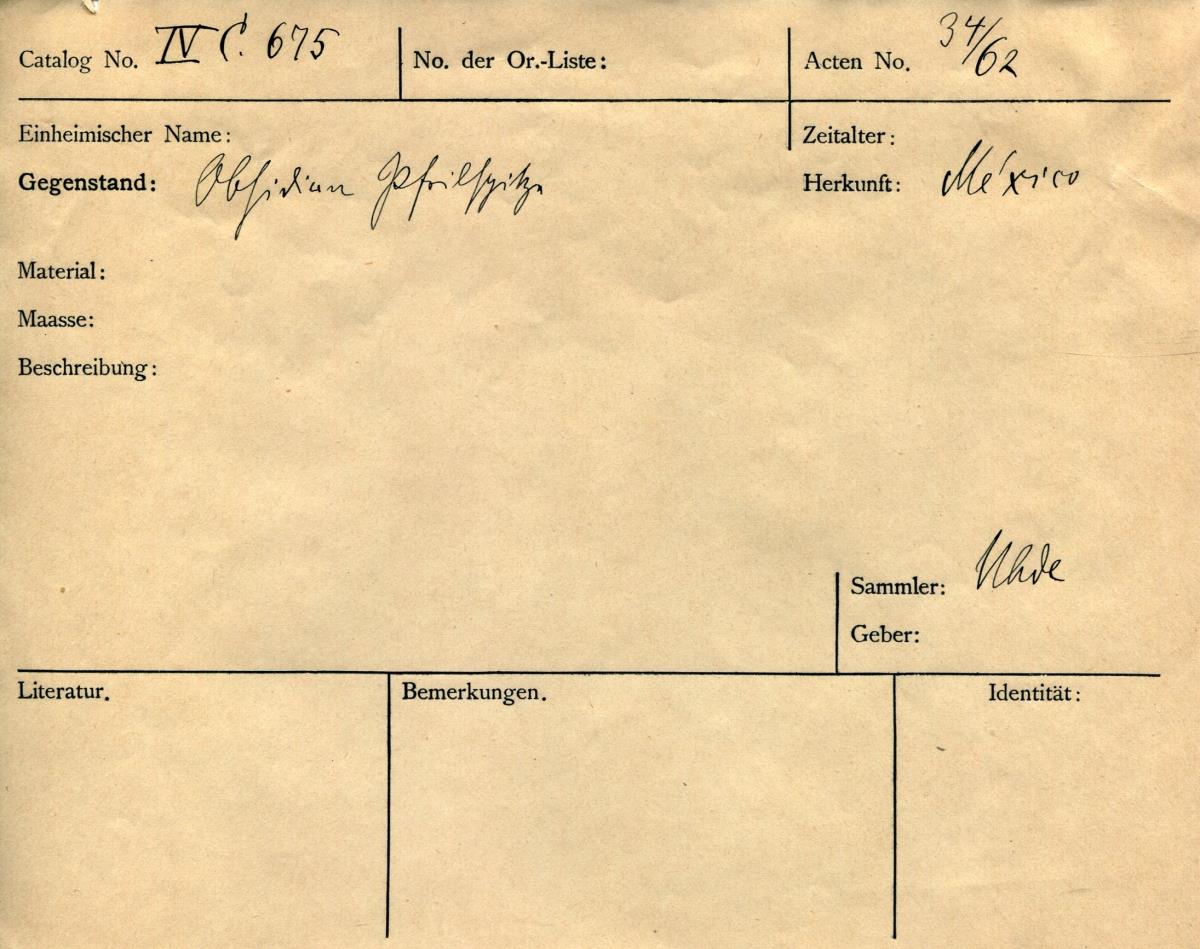 Catalog No. IV C. 675 No. der Or.-Liste: Acten No. 34/62
Einheimischer Name: Zeitalter:
Gegenstand: Obsidian Pfeilspitze Herkunft: México
Material:
Maasse:
Beschreibung:
Sammler: Uhde
Geber:
Literatur. Bemerkungen. Identität: